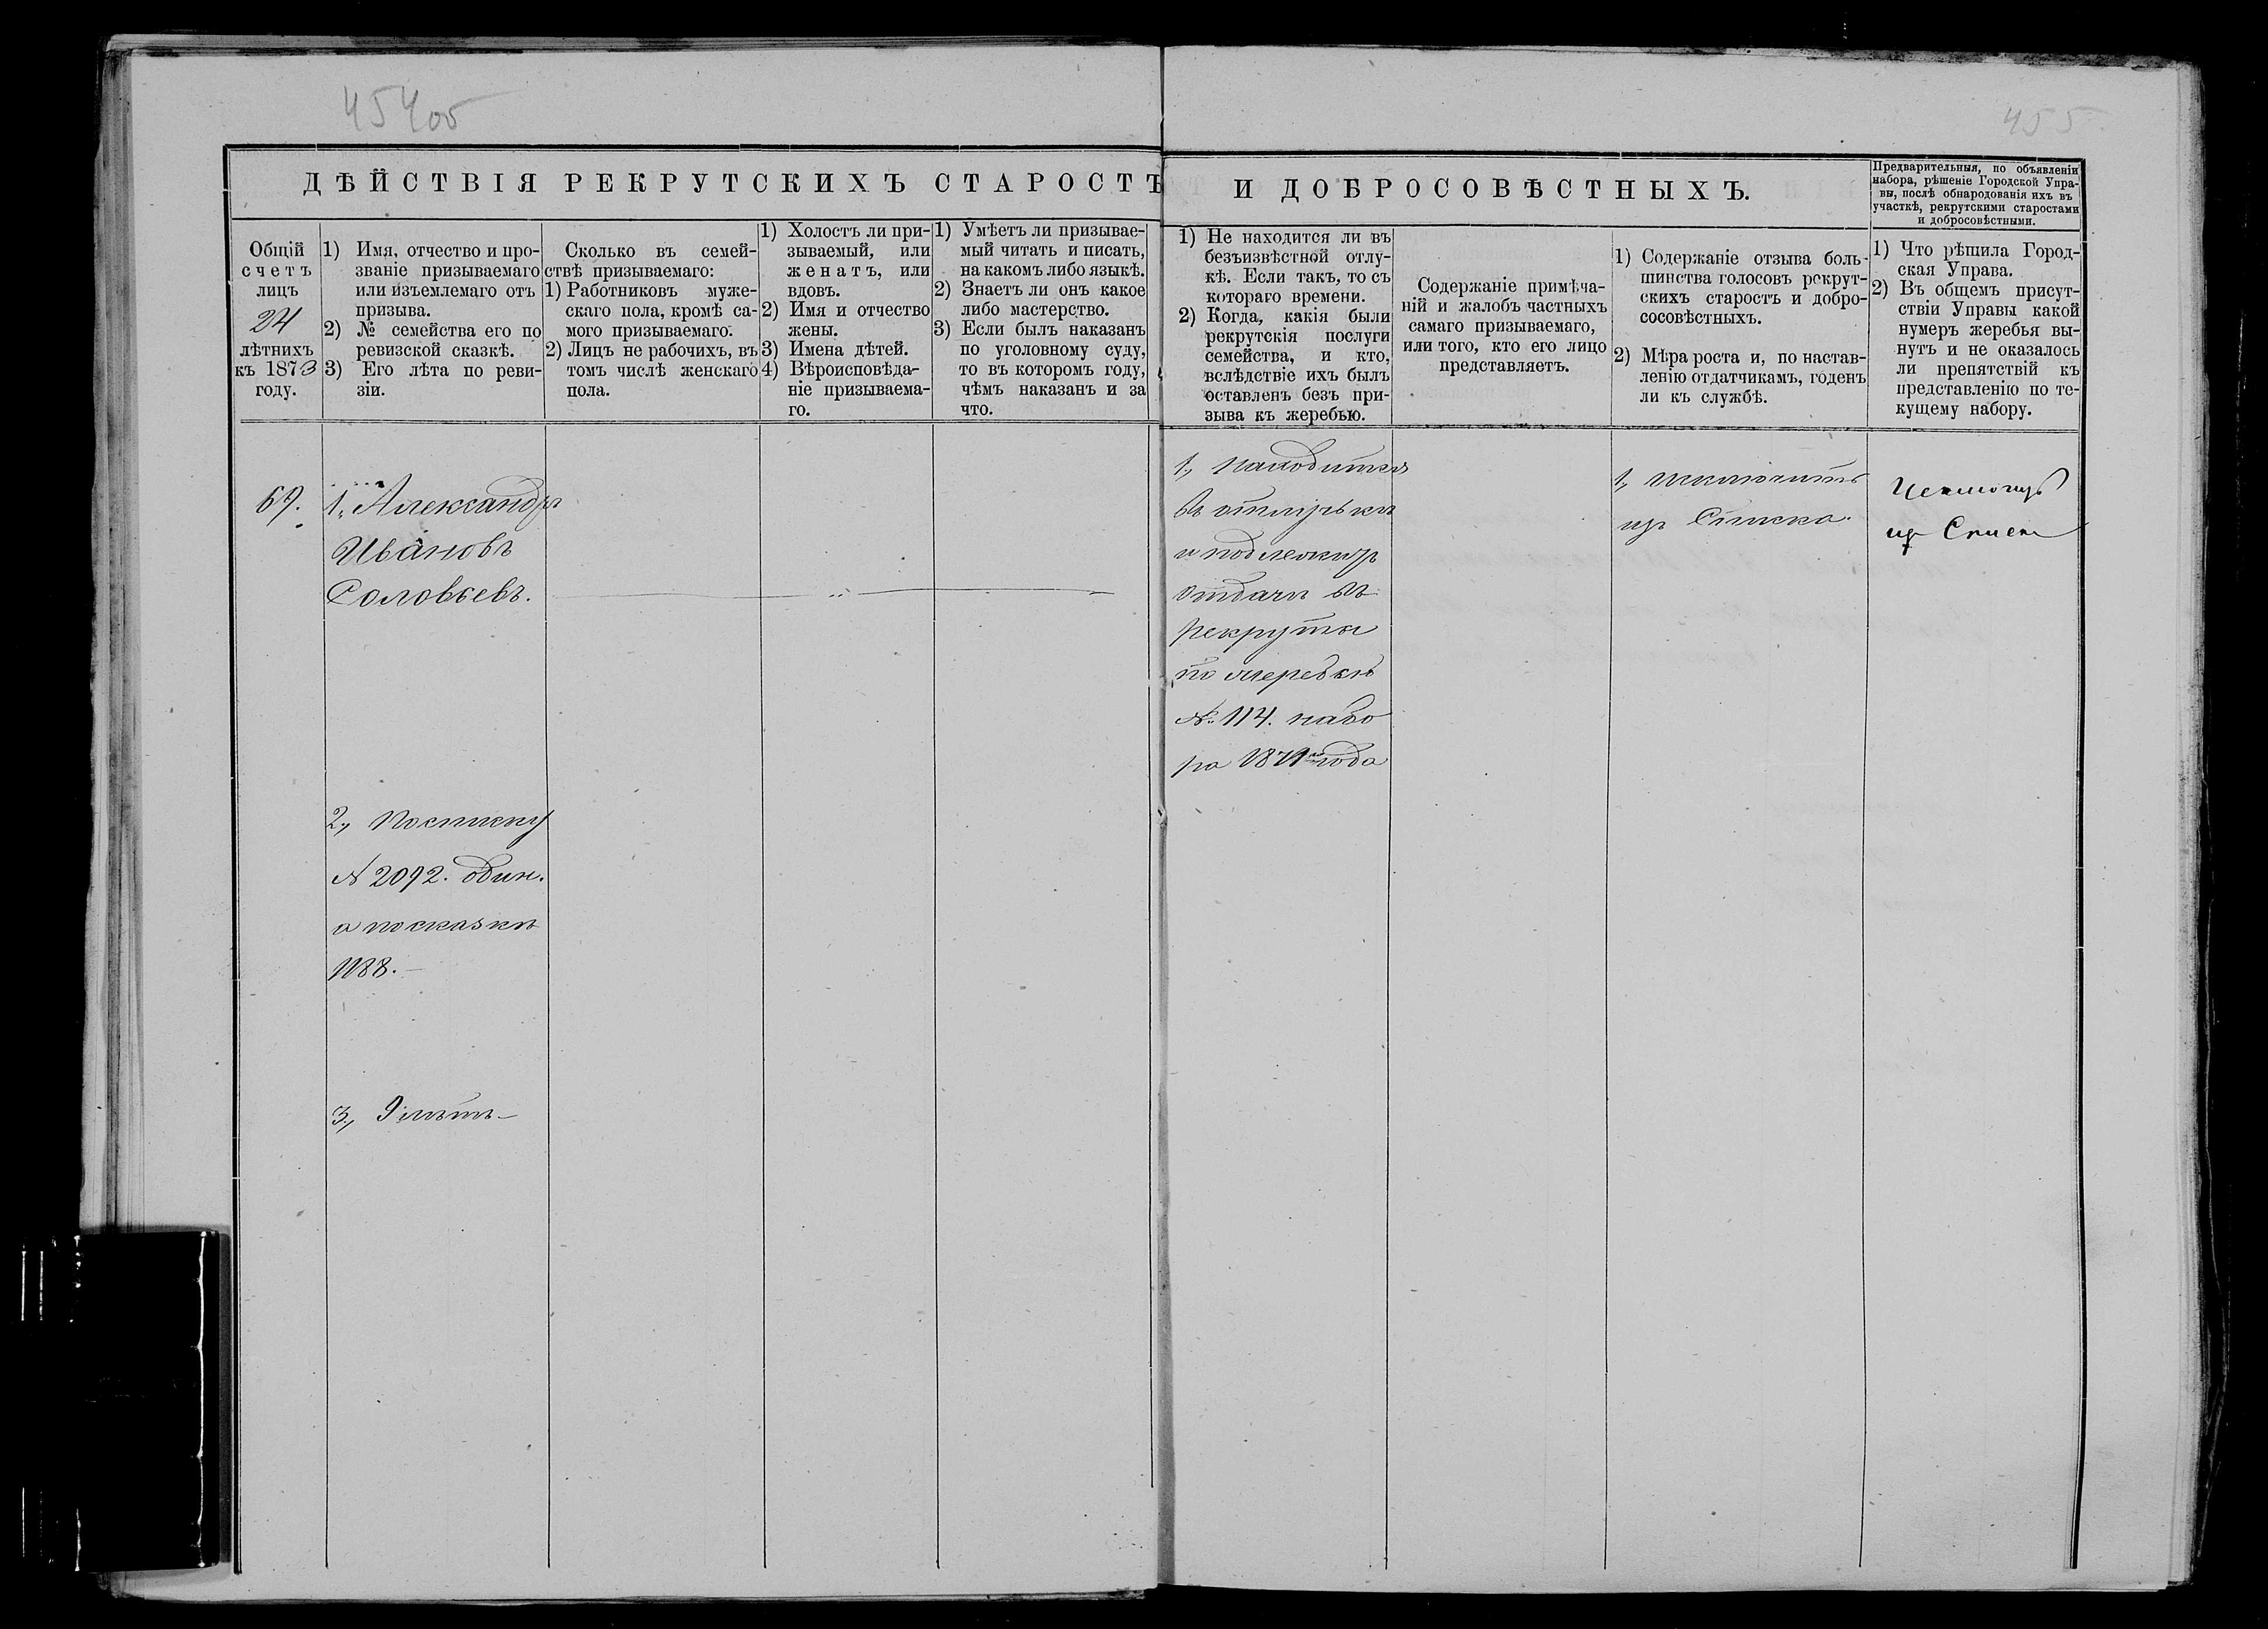 454об
455
ДѢЙСТВІЯ РЕКРУТСКИХЪ СТАРОСТЪ И ДОБРОСОВѢСТНЫХЪ.
Предварительныя, по объявленіи
набора, рѣшеніе Городской Упра-
вы, послѣ обнародованія ихъ въ
участкѣ, рекрутскими старостами
и добросовѣстными.
Общій
счетъ
лицъ
24
лѣтнихъ
къ 1873
году.
1) Имя, отчество и про-
званіе призываемаго
или изъемлемаго отъ
призыва.
2) № семейства его по
ревизской сказкѣ.
3) Его лѣта по реви-
зіи.
Сколько въ семей-
ствѣ призываемаго:
1) Работниковъ муже-
скаго пола, кромѣ са-
мого призываемаго.
2) Лицъ не рабочихъ, въ
томъ числѣ женскаго
пола.
1) Холостъ ли при-
зываемый, или
женатъ, или
вдовъ.
2) Имя и отчество
жены.
3) Имена дѣтей.
4) Вѣроисповѣда-
ніе призываема-
го.
1) Умѣетъ ли призывае-
мый читать и писать,
на какомъ либо языкѣ.
2) Знаетъ ли онъ какое
либо мастерство.
3) Если былъ наказанъ
по уголовному суду,
то въ которомъ году,
чѣмъ наказанъ и за
что.
1) Не находится ли въ
безъизвѣстной отлу-
кѣ. Если такъ, то съ
котораго времени.
2) Когда, какія были
рекрутскія послуги
семейства, и кто,
вслѣдствіе ихъ былъ
оставленъ безъ при-
зыва къ жеребью.
Содержаніе примѣча-
ній и жалобъ частныхъ
самаго призываемаго,
или того, кто его лицо
представляетъ.
1) Содержаніе отзыва боль-
шинства голосовъ рекрут-
скихъ старостъ и добро-
сосовѣстныхъ.
2) Мѣра роста и, по настав-
ленію отдатчикамъ, годенъ
ли къ службѣ.
1) Что рѣшила Город-
ская Управа.
2) Въ общемъ присут-
ствіи Управы какой
нумеръ жеребья вы-
нутъ и не оказалось
ли препятствій къ
представленію по те-
кущему набору.
69.
1, Александръ
Ивановъ
Соловьевъ.
2, По списку
№ 2092. один.
а по сказкѣ
1188.
3, 9 лѣтъ
1, Находится
въ отлучкѣ
и подлежитъ
отдачи въ
рекруты
по жеребью
№ 114. набо
ра 1871 года
1, Исключить
изъ Списка.
Исключить
изъ Списка